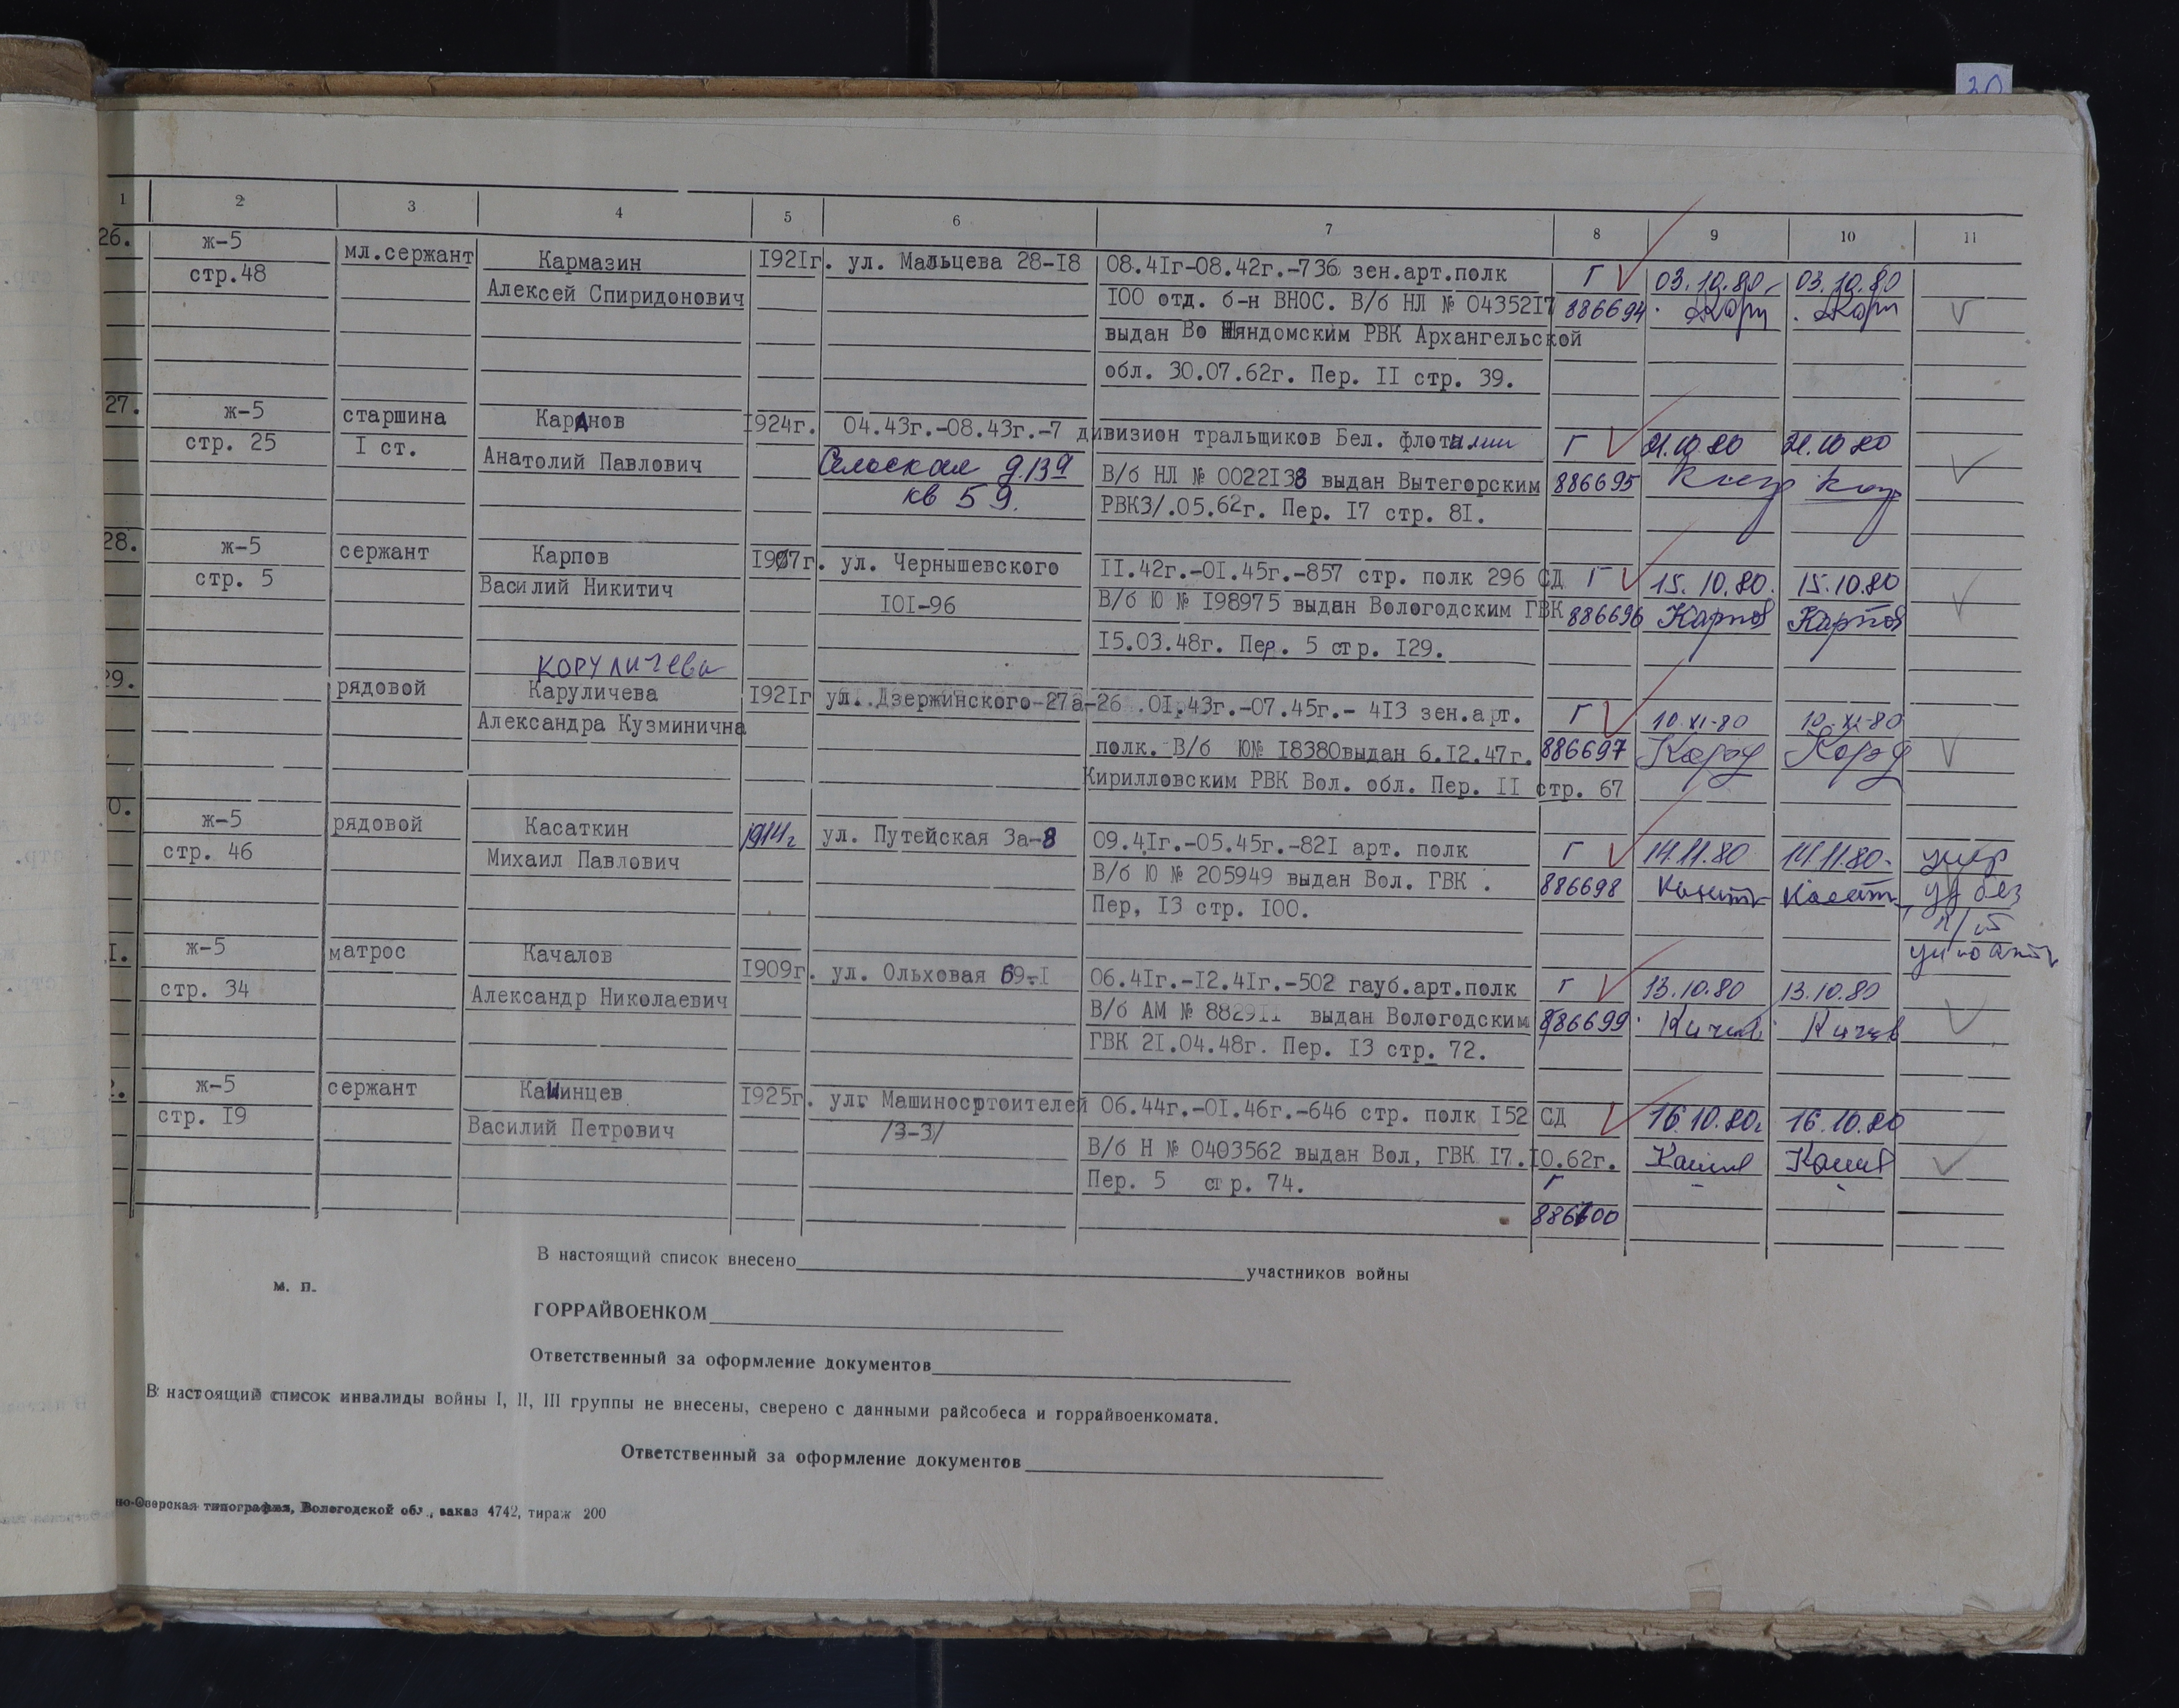 30
1 2 3 4 5 6 7 8 9 10 11
26. ж-5 мл.сержант Кармазин 1921г. ул. Мальцева 28-18 08.41г-08.42г.-736 зен.арт.полк Г 03.10.80 03.10.80
стр.48 Алексей Спиридонович 100 отд. б-н ВНОС. В/б НЛ № 0435217 886694
выдан Во Няндомским РВК Архангельской
обл. 30.07.62г. Пер. II стр. 39.
27. ж-5 старшина Каранов 1924г. 04.43г.-08.43г.-7 дивизион тральщиков Бел. флотилии Г 21.10.80 21.10.80
стр. 25 I ст. Анатолий Павлович д.13а В/б НЛ № 0022138 выдан Вытегорским 886695
кв 59. РВК3/.05.62г. Пер. 17 стр. 81.
28. ж-5 сержант Карпов 1907г. ул. Чернышевского 11.42г.-01.45г.-857 стр. полк 296 СД Г 15.10.80. 15.10.80
стр. 5 Василий Никитич 101-96 В/б Ю № 198975 выдан Вологодским ГВК 886696 Карпов Карпов
15.03.48г. Пер. 5 стр. 129.
Коруличева
29. рядовой Каруличева 1921г ул. Дзержинского-27а-26 .01.43г.-07.45г.- 413 зен.арт. Г 10.XI-80 10.XI-80
Александра Кузминична полк. В/б Ю№ 18380выдан 6.12.47г. 886697
Кирилловским РВК Вол. обл. Пер. II стр. 67
0. ж-5 рядовой Касаткин 1914г ул. Путейская 3а-8 09.41г.-05.45г.-821 арт. полк Г 14.11.80 14.11.80. умер
стр. 46 Михаил Павлович В/б Ю № 205949 выдан Вол. ГВК . 886698 уд без
Пер, 13 стр. 100.
1. ж-5 матрос Качалов 1909г. ул. Ольховая 69-1 06.41г.-12.41г.-502 гауб.арт.полк Г 13.10.80 13.10.80
стр. 34 Александр Николаевич В/б АМ № 882911 выдан Вологодским 886699
ГВК 21.04.48г. Пер. 13 стр. 72.
2. ж-5 сержант Кашинцев 1925г. улг Машиносртоителей 06.44г.-01.46г.-646 стр. полк 152 СД 16.10.80г 16.10.80
стр. 19 Василий Петрович /3-3/ В/б Н № 0403562 выдан Вол, ГВК 17.10.62г.
Пер. 5 стр. 74. Г
886700
В настоящий список внесено участников войны
м. п.
ГОРРАЙВОЕНКОМ
Ответственный за оформление документов
В настоящий список инвалиды войны I, II, III группы не внесены, сверено с данными райсобеса и горрайвоенкомата.
Ответственный за оформление документов
но-Озерская типография, Вологодской обл., заказ 4742, тираж 200